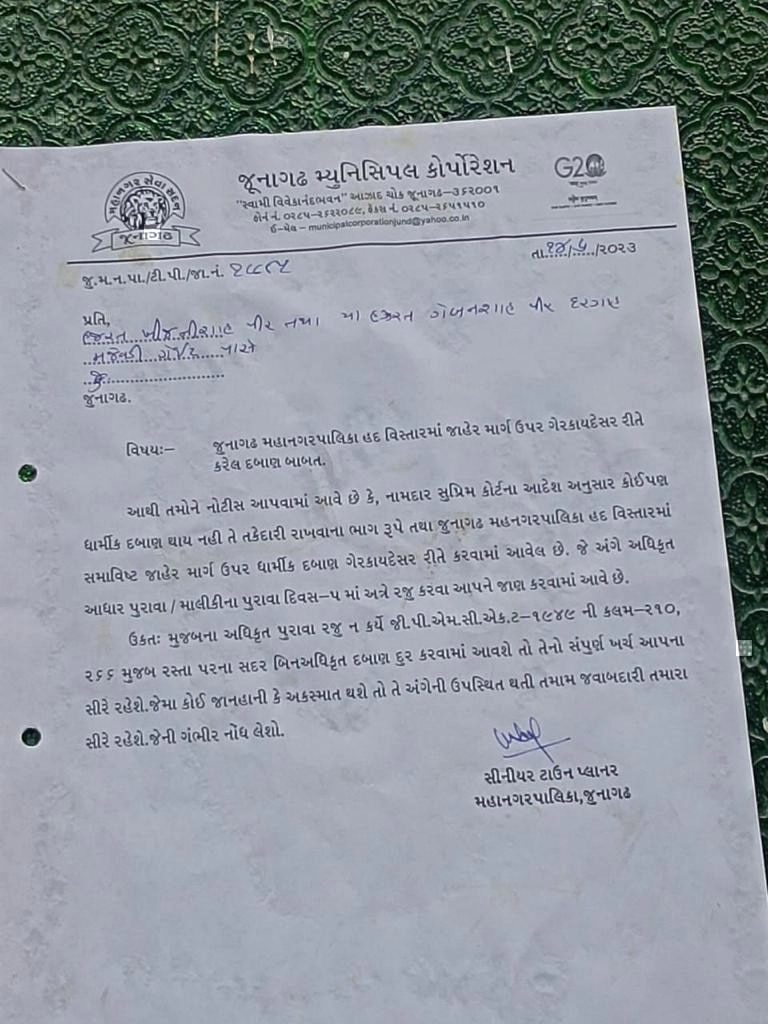 મહાનગર સેવા સદન
જૂનાગઢ
જૂનાગઢ મ્યુનિસિપલ કોર્પોરેશન
"સ્વામી વિવેકાનંદભવન" આઝાદ ચોક જૂનાગઢ–૩૬૨૦૦૧
ફોન નં. ૦૨૮૫–૨૬૨૨૦૮૯, ફેકસ નં. ૦૨૮૫–૨૬૫૧૫૧૦
ઈ-મેલ – municipalcorporationjund@yahoo.co.in
G20
જુ.મ.ન.પા./ટી.પી./જા.નં.
તા. /૨૦૨૩
પ્રતિ,
હજરત પીર તથા હજરત ગેબનશાહ પીર દરગાહ
મજેવડી ગેઈટ પાસે
જુનાગઢ.
વિષયઃ– જુનાગઢ મહાનગરપાલિકા હદ વિસ્તારમાં જાહેર માર્ગ ઉપર ગેરકાયદેસર રીતે
કરેલ દબાણ બાબત.
આથી તમોને નોટીસ આપવામાં આવે છે કે, નામદાર સુપ્રિમ કોર્ટના આદેશ અનુસાર કોઈપણ
ધાર્મીક દબાણ થાય નહી તે તકેદારી રાખવાના ભાગ રૂપે તથા જુનાગઢ મહનગરપાલિકા હદ વિસ્તારમાં
સમાવિષ્ટ જાહેર માર્ગ ઉપર ધાર્મીક દબાણ ગેરકાયદેસર રીતે કરવામાં આવેલ છે. જે અંગે અધિકૃત
આધાર પુરાવા / માલીકીના પુરાવા દિવસ–૫ માં અત્રે રજુ કરવા આપને જાણ કરવામાં આવે છે.
ઉકતઃ મુજબના અધિકૃત પુરાવા રજુ ન કર્યે જી.પી.એમ.સી.એક.ટ–૧૯૪૯ ની કલમ–૨૧૦,
૨૬૬ મુજબ રસ્તા પરના સદર બિનઅધિકૃત દબાણ દુર કરવામાં આવશે તો તેનો સંપુર્ણ ખર્ચ આપના
સીરે રહેશે.જેમા કોઈ જાનહાની કે અકસ્માત થશે તો તે અંગેની ઉપસ્થિત થતી તમામ જવાબદારી તમારા
સીરે રહેશે.જેની ગંભીર નોંધ લેશો.
સીનીયર ટાઉન પ્લાનર
મહાનગરપાલિકા,જુનાગઢ